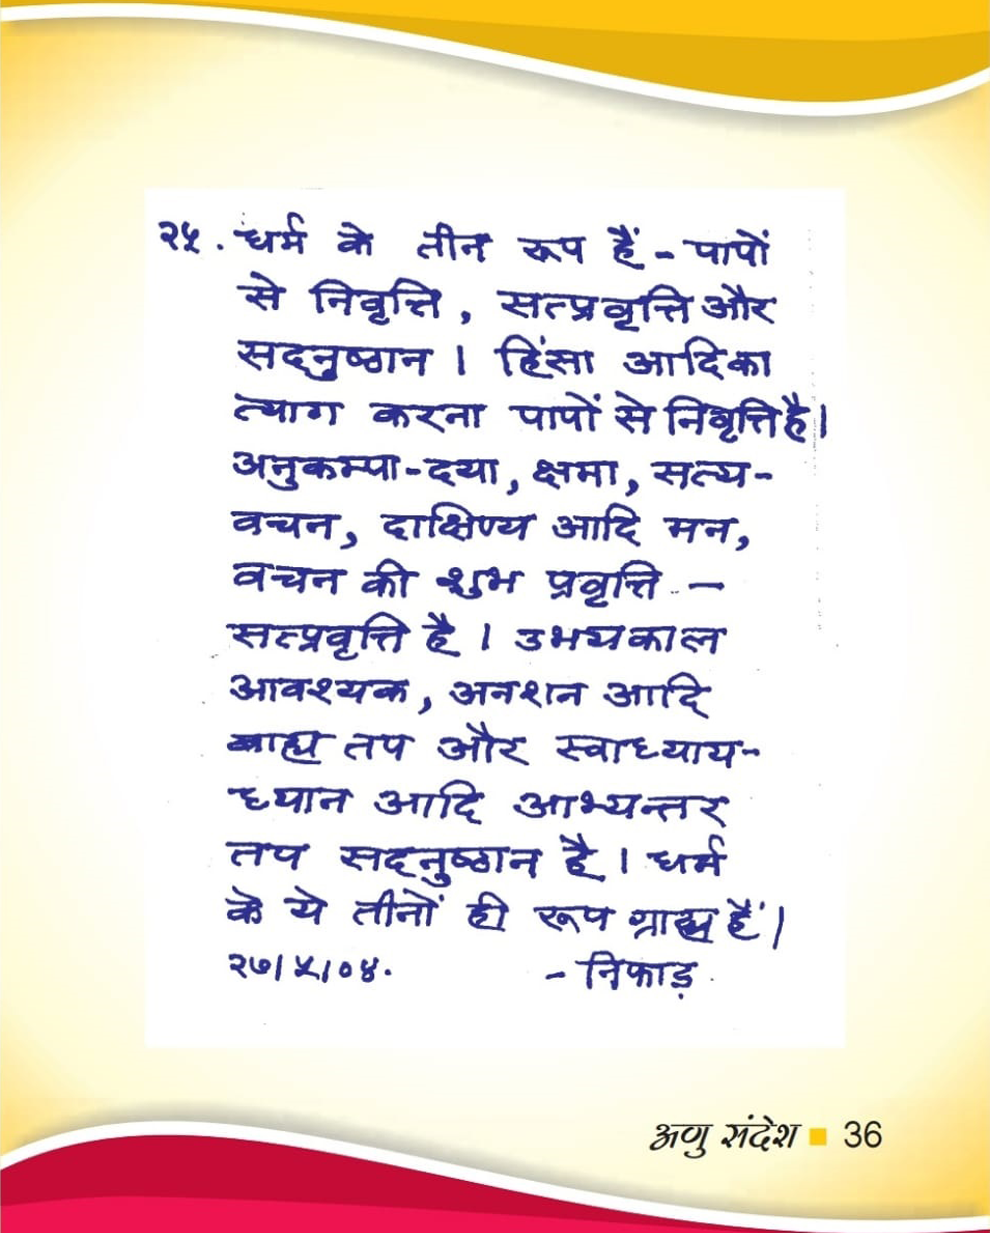 २५. धर्म के तीन रूप हैं - पापों
से निवृत्ति, सत्प्रवृत्ति और
सदनुष्ठान । हिंसा आदि का
त्याग करना पापों से निवृत्ति है।
अनुकम्पा-दया, क्षमा, सत्य-
वचन, दाक्षिण्य आदि मन,
वचन की शुभ प्रवृत्ति -
सत्प्रवृत्ति है । उभयकाल
आवश्यक, अनशन आदि
बाह्य तप और स्वाध्याय-
ध्यान आदि आभ्यन्तर
तप सदनुष्ठान है । धर्म
के ये तीनों ही रूप ग्राह्य हैं।
२७।५।०४. - निफाड़
अणु संदेश 36